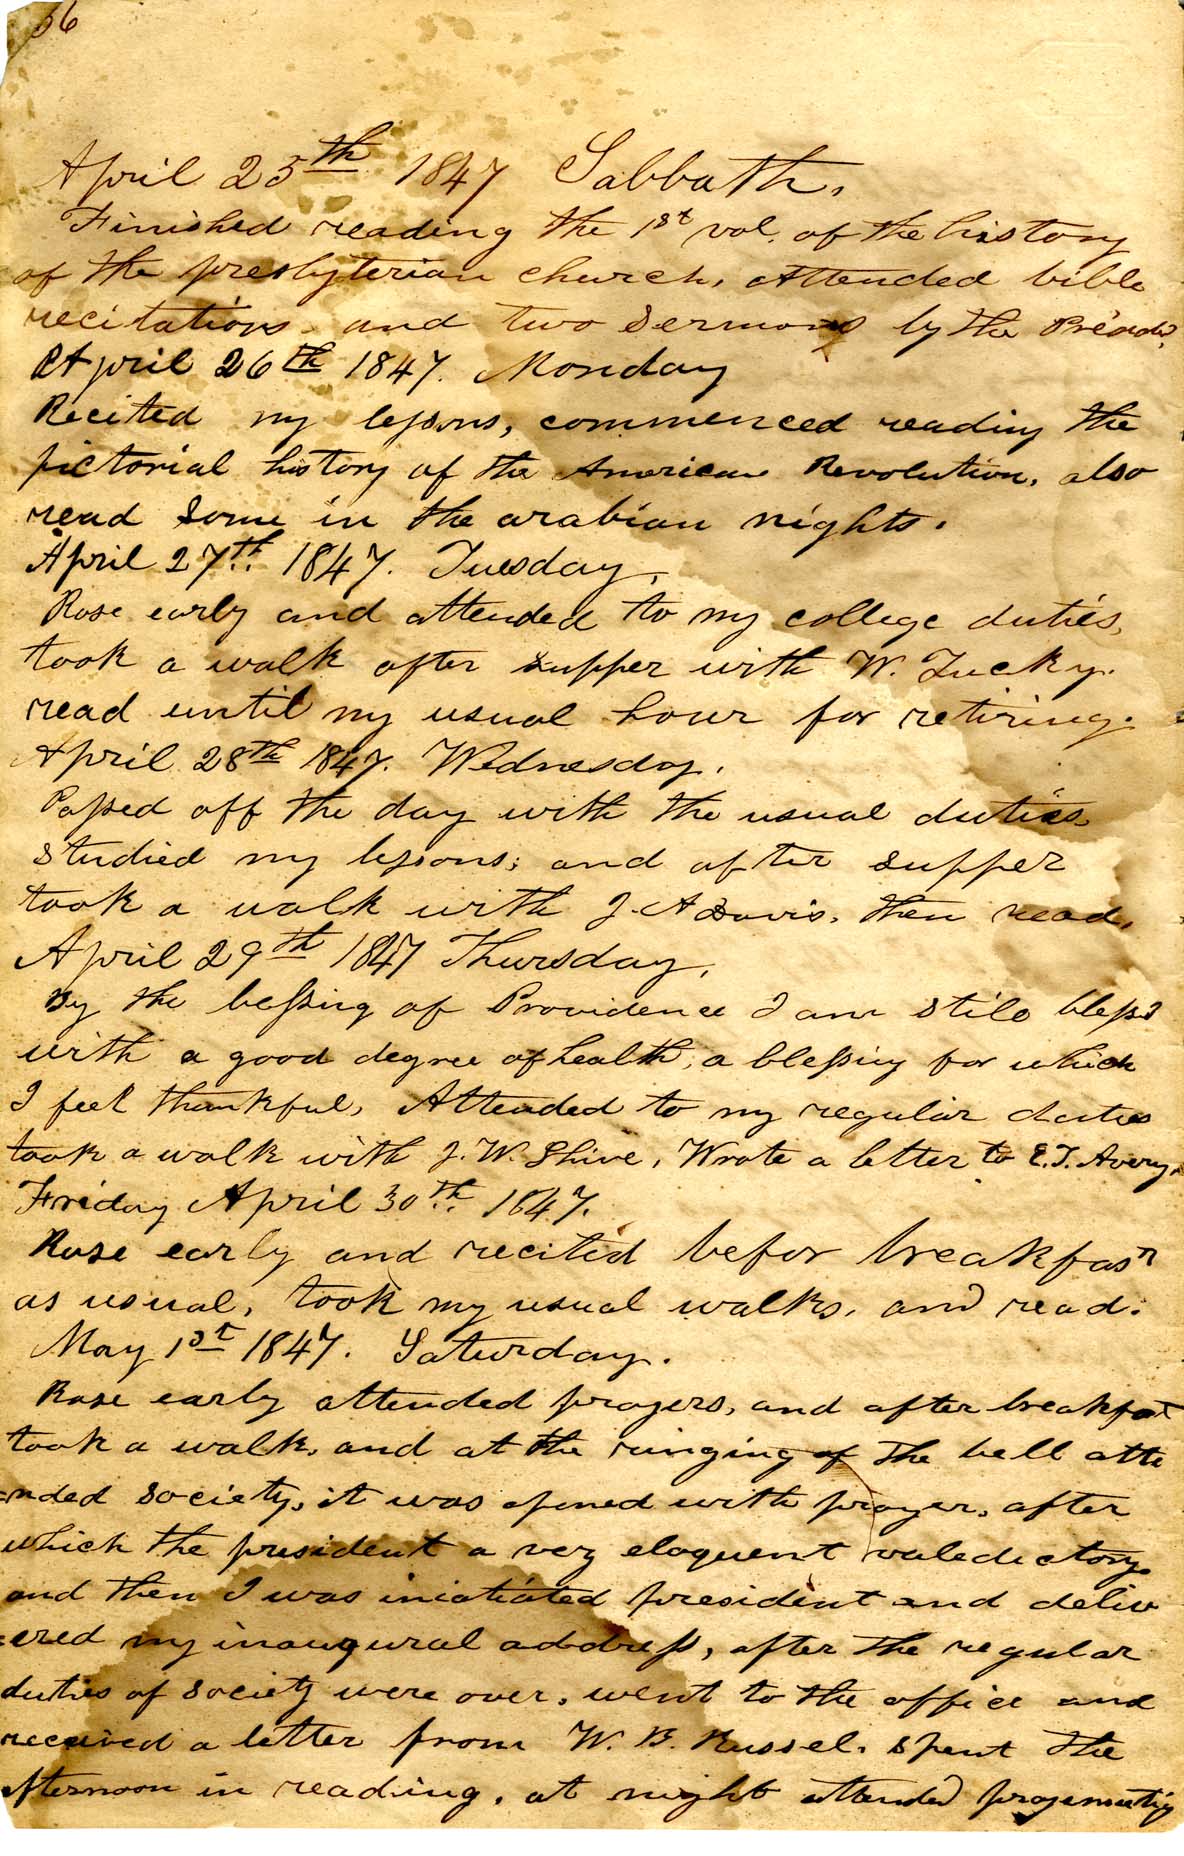 56
April 25th 1847 Sabbath.
Finished reading the 1st vol. of the history
of the presbyterian church, Attended bible
recitations and two sermons by the
April 26th 1847. Monday
Recited my lessons, commenced reading the
pictorial history of the American Revolution, also
read some in the arabian nights.
April 27th. 1847. Tuesday,
Rose early and attended to my college duties,
took a walk after supper with W. Lucky.
read until my usual hour for retiring.
April 28th 1847. Wednesday.
Passed off the day with the usual duties
studied my lessons; and after supper
took a walk with J. A Davis, then read.
April 29th 1847 Thursday,
By the blessing of Providence I am still bless'd
with a good degree of health, a blessing for which
I feel thankful, Attended to my regular duties
took a walk with J. W. Shive, Wrote a letter to E. T. Avery.
Friday April 30th. 1847.
Rose early and recited befor breakfast
as usual, took my usual walks, and read.
May 1st 1847. Saturday.
Rose early attended prayers, and after breakfast
took a walk, and at the ringing of the bell atte
=nded society, it was opened with prayer, after
which the president a very eloquent valedictory
and then I was iniatiated president and deliv
=ered my inaugural address, after the regular
duties of society were over, went to the office and
received a letter from W. B. Russel, spent the
afternoon in reading, at night attended